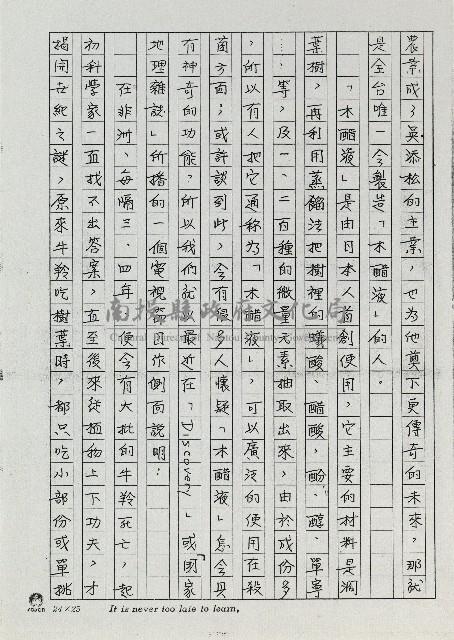 農業成了吳添松的主業，也為他奠下更傳奇的未來，那就
是全台唯一会製造「木醋液」的人。
「木醋液」是由日本人首創使用，它主要的材料是闊
葉樹，再利用蒸餾法把樹裡的蟻酸、醋酸，酚、醇、單寧
…等，及一、二百種的微量元素抽取出來，由於成份多
，所以有人把它通称為「木醋液」，可以廣泛的使用在殺
菌方面；或許談到此，会有很多人懷疑「木醋液」怎会具
有神奇的功能，所以我們就以最近在「Discovery」或「國家
地理雜誌」所播的一個電視節目作側面說明：
在非洲、每隔三、四年，便会有大批的牛羚死亡，起
初科學家一直找不出答案，直至後來從植物上下功夫，才
揭開世紀之謎，原來牛羚吃樹葉時，都只吃小部份或單挑
24×25
It is never too late to learn.
南投縣政府文化局